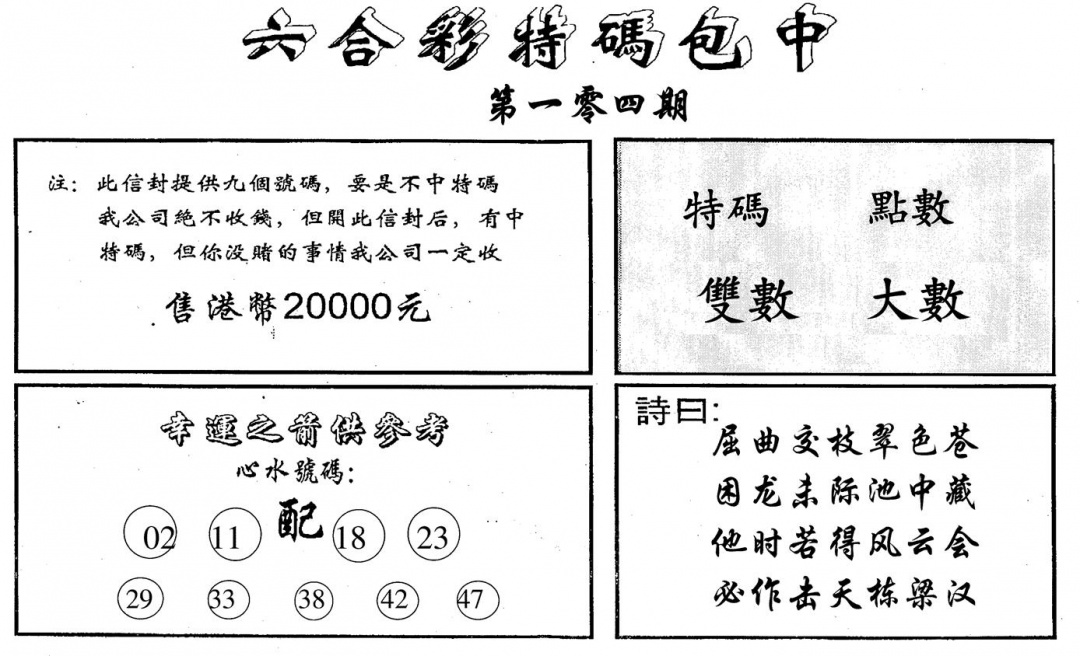 六合彩特碼包中
第一零四期
注：此信封提供九個號碼，要是不中特碼
我公司絕不收錢，但開此信封后，有中
特碼，但你没賭的事情我公司一定收
售港幣20000元
特碼 點數
雙數 大數
幸運之箭供參考
心水號碼：
配
02 11 18 23
29 33 38 42 47
詩曰：
屈曲交枝翠色苍
困龙未际池中藏
他时若得风云会
必作击天栋梁汉